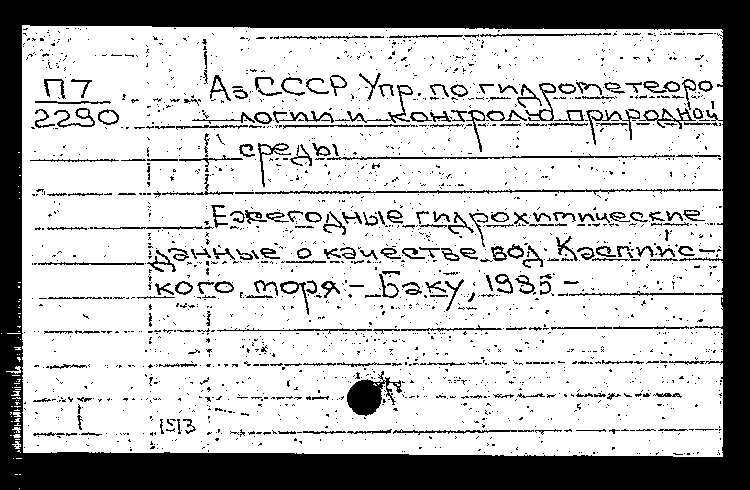 П7
2290
АзСССР, Упр. по гидрометеоро-
логии и контролю природной
среды.
Ежегодные гидрохимические
данные о качестве вод Каспийс-
кого моря. - Баку, 1985 -
1513